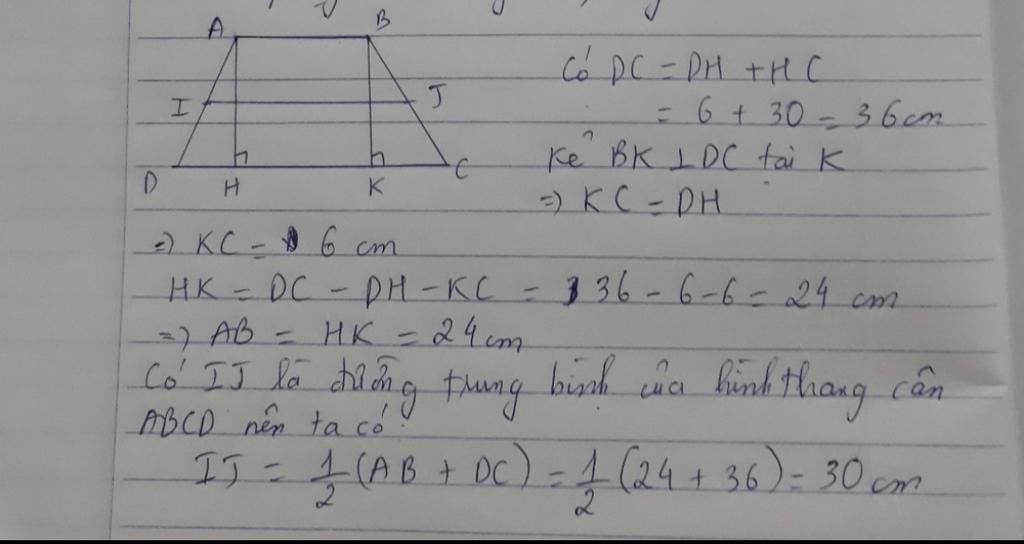 A B
Có DC = DH + HC
I J
= 6 + 30 = 36cm
Kẻ BK ⊥ DC tại K
D H K C
=> KC = DH
=> KC = 6 cm
HK = DC - DH - KC = 36 - 6 - 6 = 24 cm
=> AB = HK = 24cm
Có IJ là đường trung bình của hình thang cân
ABCD nên ta có:
IJ = 1/2 (AB + DC) = 1/2 (24 + 36) = 30 cm